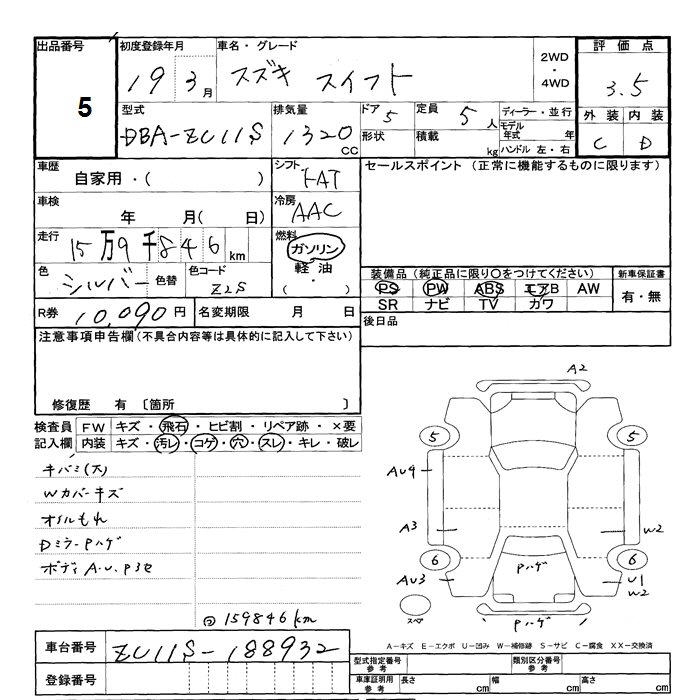 出品番号
5
初度登録年月
19 3月
車名・グレード
スズキ スイフト
2WD
・
4WD
評価点
3.5
外装 内装
C D
型式
DBA-ZC11S
排気量
1320 CC
ドア 5
形状
定員 5人
積載 kg
ディーラー・並行
モデル年式 年
ハンドル 左・右
車歴
自家用・( )
シフト
FAT
セールスポイント (正常に機能するものに限ります)
車検
年 月( 日)
冷房
AAC
走行
15万9千846km
燃料
ガソリン
軽油
( ・ )
色
シルバー
色替
色コード
Z2S
装備品(純正品に限り○をつけてください)
新車保証書
PS PW ABS エアB AW
SR ナビ TV カワ
有・無
R券 10,090円
名変期限 月 日
後日品
注意事項申告欄(不具合内容等は具体的に記入して下さい)
修復歴 有 〔箇所 〕
検査員
記入欄
FW キズ・飛石・ヒビ割・リペア跡・×要
内装 キズ・汚レ・コゲ・穴・スレ・キレ・破レ
キバミ(大)
Wカバーキズ
オイルもれ
Dミラー Pハゲ
ボディ A.U.P3セ
159846km
A2
5
5
AU4
A3
W2
6
6
Pハゲ
AU3
U1
W2
スペ
Pハゲ
A-キズ E-エクボ U-凹み W-補修跡 S-サビ C-腐食 XX-交換済
車台番号
ZC11S-188932
登録番号
型式指定番号
参考
類別区分番号
参考
車庫証明用
参考
長さ cm
幅 cm
高さ cm